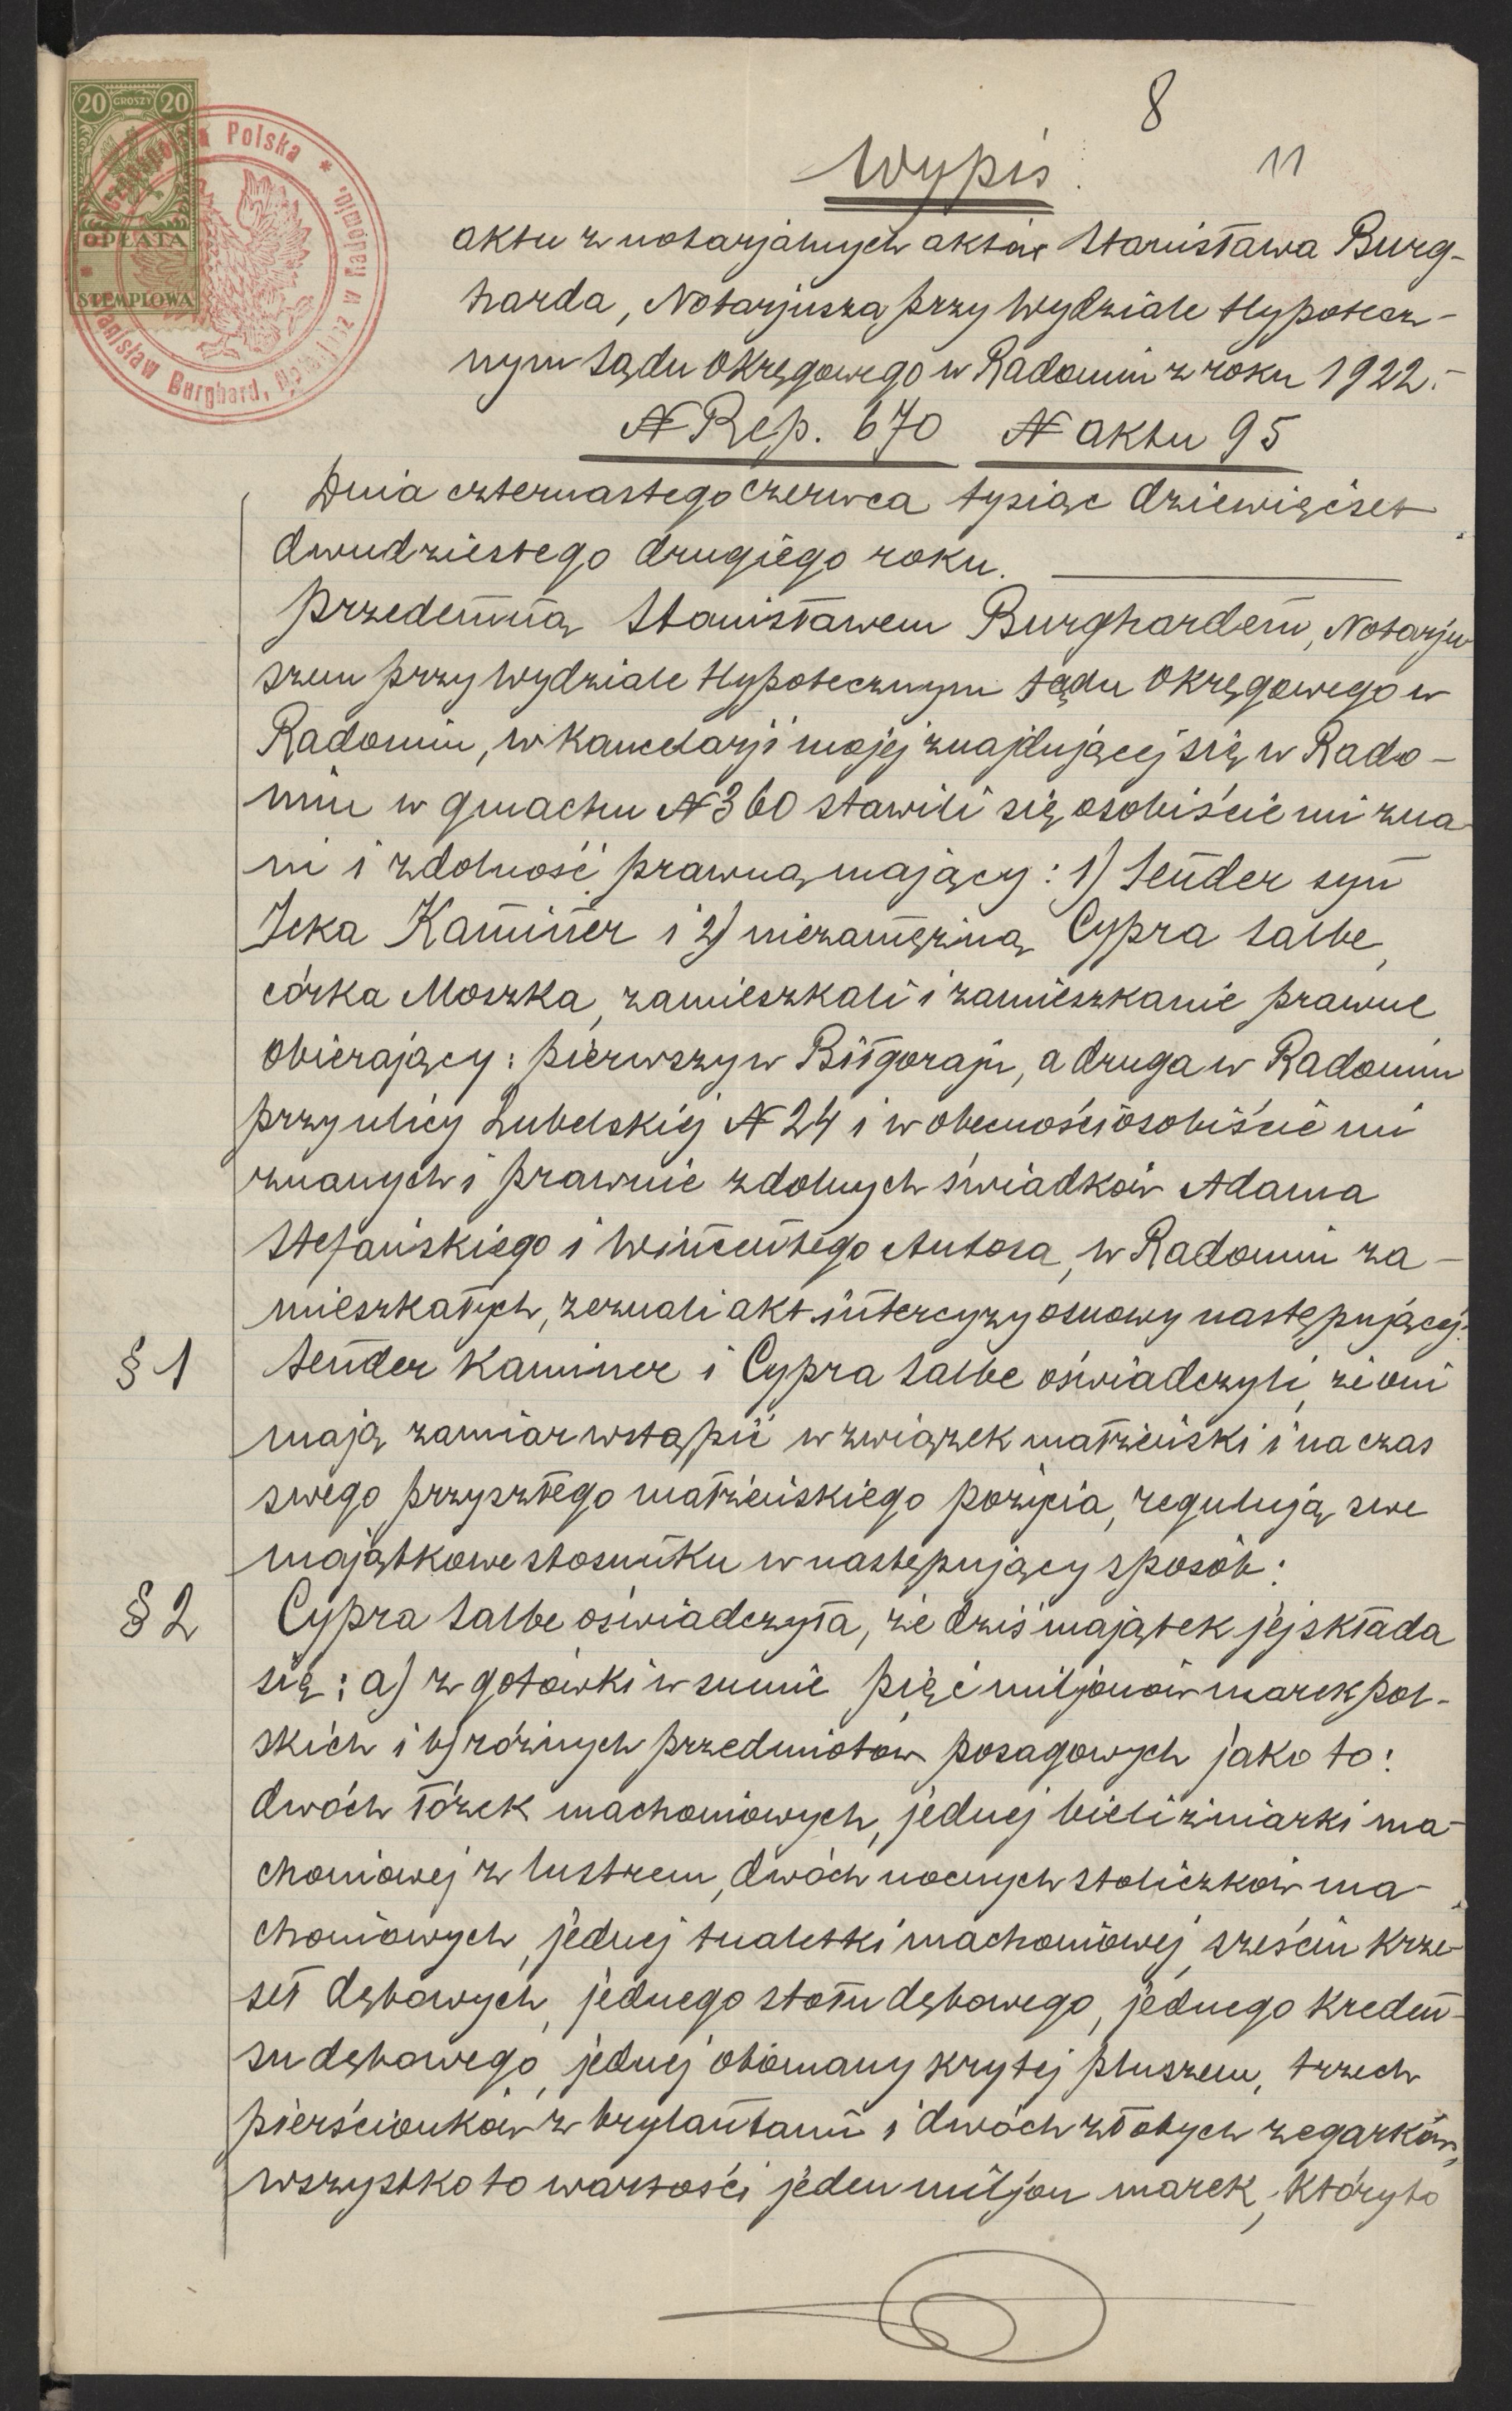 20 GROSZY 20
OPŁATA
STEMPLOWA
Rzeczpospolita Polska * Stanisław Burghard, Notarjusz w Radomiu. *
8
11
Wypis
aktu z notarjalnych aktów Stanisława Burg-
harda, Notarjusza przy Wydziale Hypotecz-
nym Sądu Okręgowego w Radomiu z roku 1922.-
N Rep. 670 N aktu 95
Dnia czternastego czerwca tysiąc dziewięćset
dwudziestego drugiego roku.
przedemną Stanisławem Burghardem, Notarju
szem przy Wydziale Hypotecznym Sądu Okręgowego w
Radomiu, w kancelarji mojej znajdującej się w Rado-
miu w gmachu N 360 stawili się osobiście mi zna
ni i zdolność prawną mający: 1) Sender syn
Icka Kaminer i 2) niezamężna Cypra Salbe,
córka Moszka, zamieszkali i zamieszkanie prawne
obierający: pierwszy w Biłgoraju, a druga w Radomiu
przy ulicy Lubelskiej N 24 i w obecności osobiście mi
znanych i prawnie zdolnych świadków Adama
Stefańskiego i Wincentego Autosa, w Radomiu za-
mieszkałych, zeznali akt intercyzy osnowy następującej:
§ 1 Sender Kaminer i Cypra Salbe oświadczyli, że oni
mają zamiar wstąpić w związek małżeński i na czas
swego przyszłego małżeńskiego pożycia, regulują swe
majątkowe stosunku w następujący sposób:
§ 2 Cypra Salbe oświadczyła, że dziś majątek jej składa
się: a) z gotówki w sumie pięć miljonów marek pol-
skich i b) różnych przedmiotów posagowych jako to:
dwóch łóżek machoniowych, jednej bieliźniarki ma-
choniowej z lustrem, dwóch nocnych stoliczków ma-
choniowych, jednej tualetki machoniowej, sześciu krze-
seł dębowych, jednego stołu dębowego, jednego kreden-
su dębowego, jednej otomany krytej pluszem, trzech
pierścionków z brylantami i dwóch złotych zegarków,
wszystko to wartości jeden miljon marek, któryto